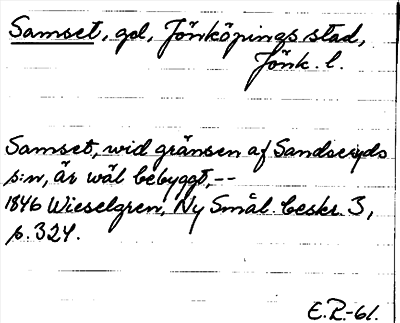 Samset, gd, Jönköpings stad,
Jönk. l.
Samset, wid gränsen af Sandseryds
s:n, är wäl bebyggt,--
1846 Wieselgren, Ny Smål. beskr. 3,
s. 324.
E.R.-61.